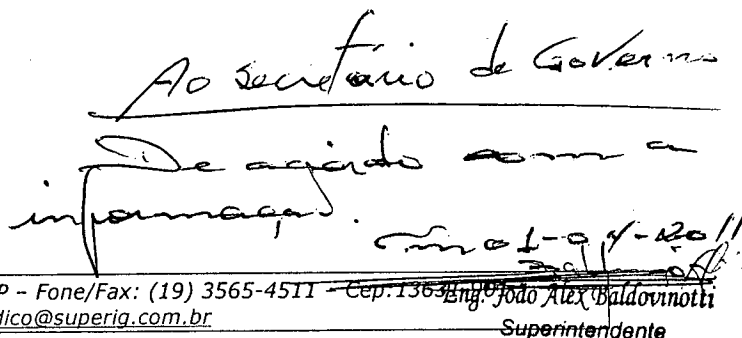 Ao Secretário de Governo
De acordo com a
informação.
Em 01-04-2011
P – Fone/Fax: (19) 3565-4511 – Cep:1363
Eng. João Alex Baldovinotti
dico@superig.com.br
Superintendente